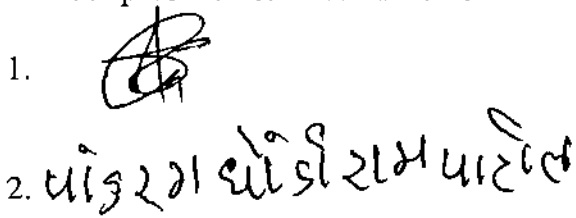 1.
2. પાંડુરગ ધોંડીરામ પાટીલ